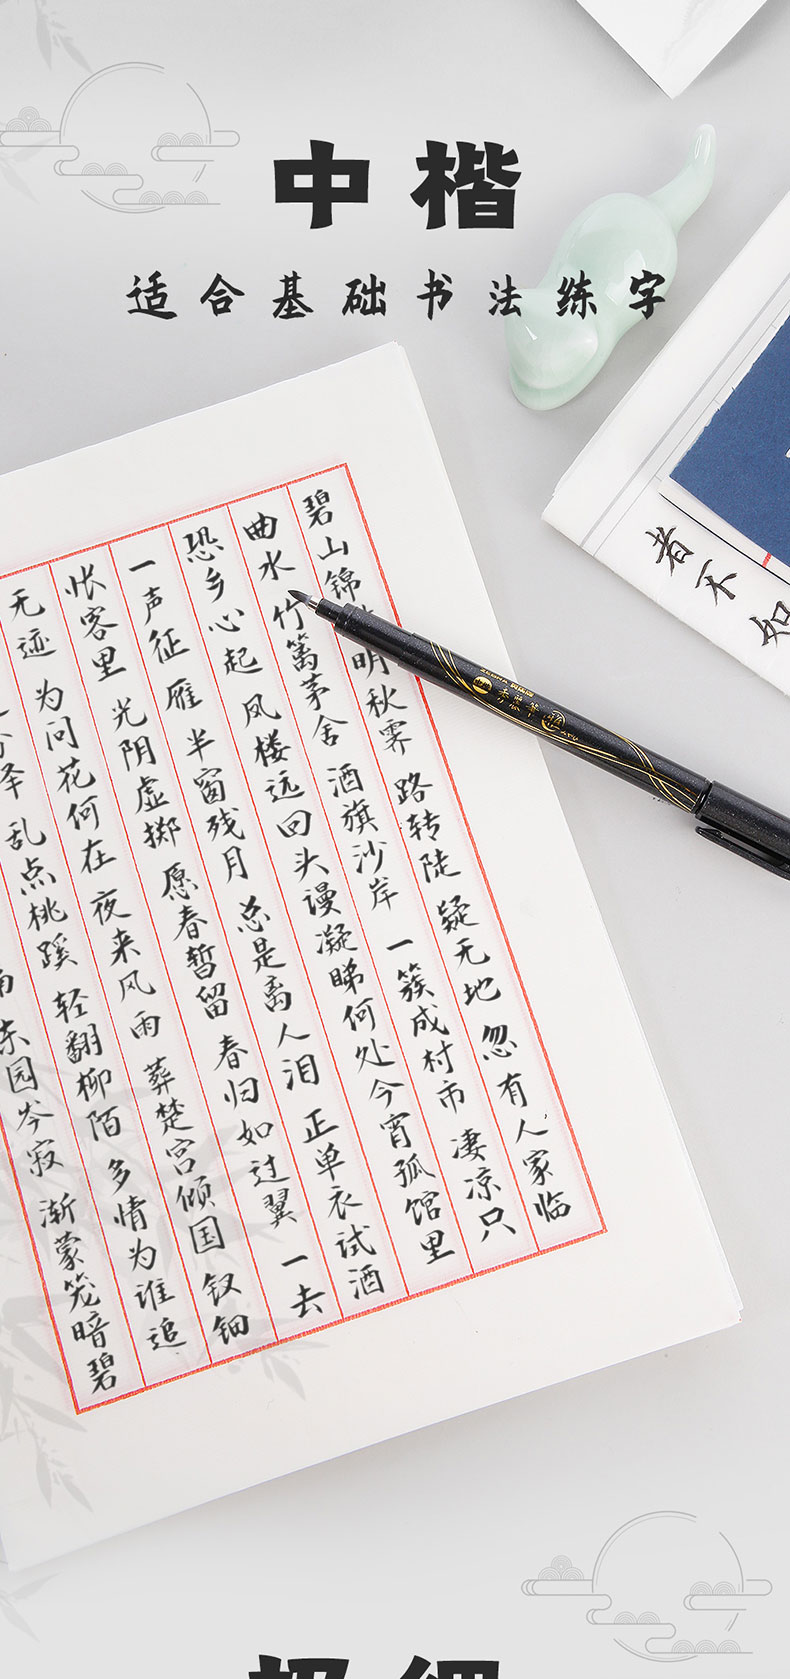 中楷
适合基础书法练字
碧山锦 明秋霁 路转陡 疑无地 忽有人家临
曲水竹篱茅舍 酒旗沙岸 一簇成村市 凄凉只
恐乡心起 凤楼远回头谩凝睇何处今宵孤馆里
一声征雁 半窗残月 总是离人泪 正单衣试酒
怅客里 光阴虚掷 愿春暂留 春归如过翼 一去
无迹 为问花何在 夜来风雨 葬楚宫倾国 钗钿
泽 乱点桃蹊 轻翻柳陌 多情为谁追
东园岑寂 渐蒙笼暗碧
者不如